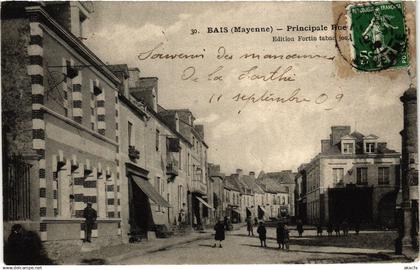 30. BAIS (Mayenne) — Principale Rue
Edition Fortin tabac jou
Souvenir des manœuvres
de la Sarthe
11 septembre 09